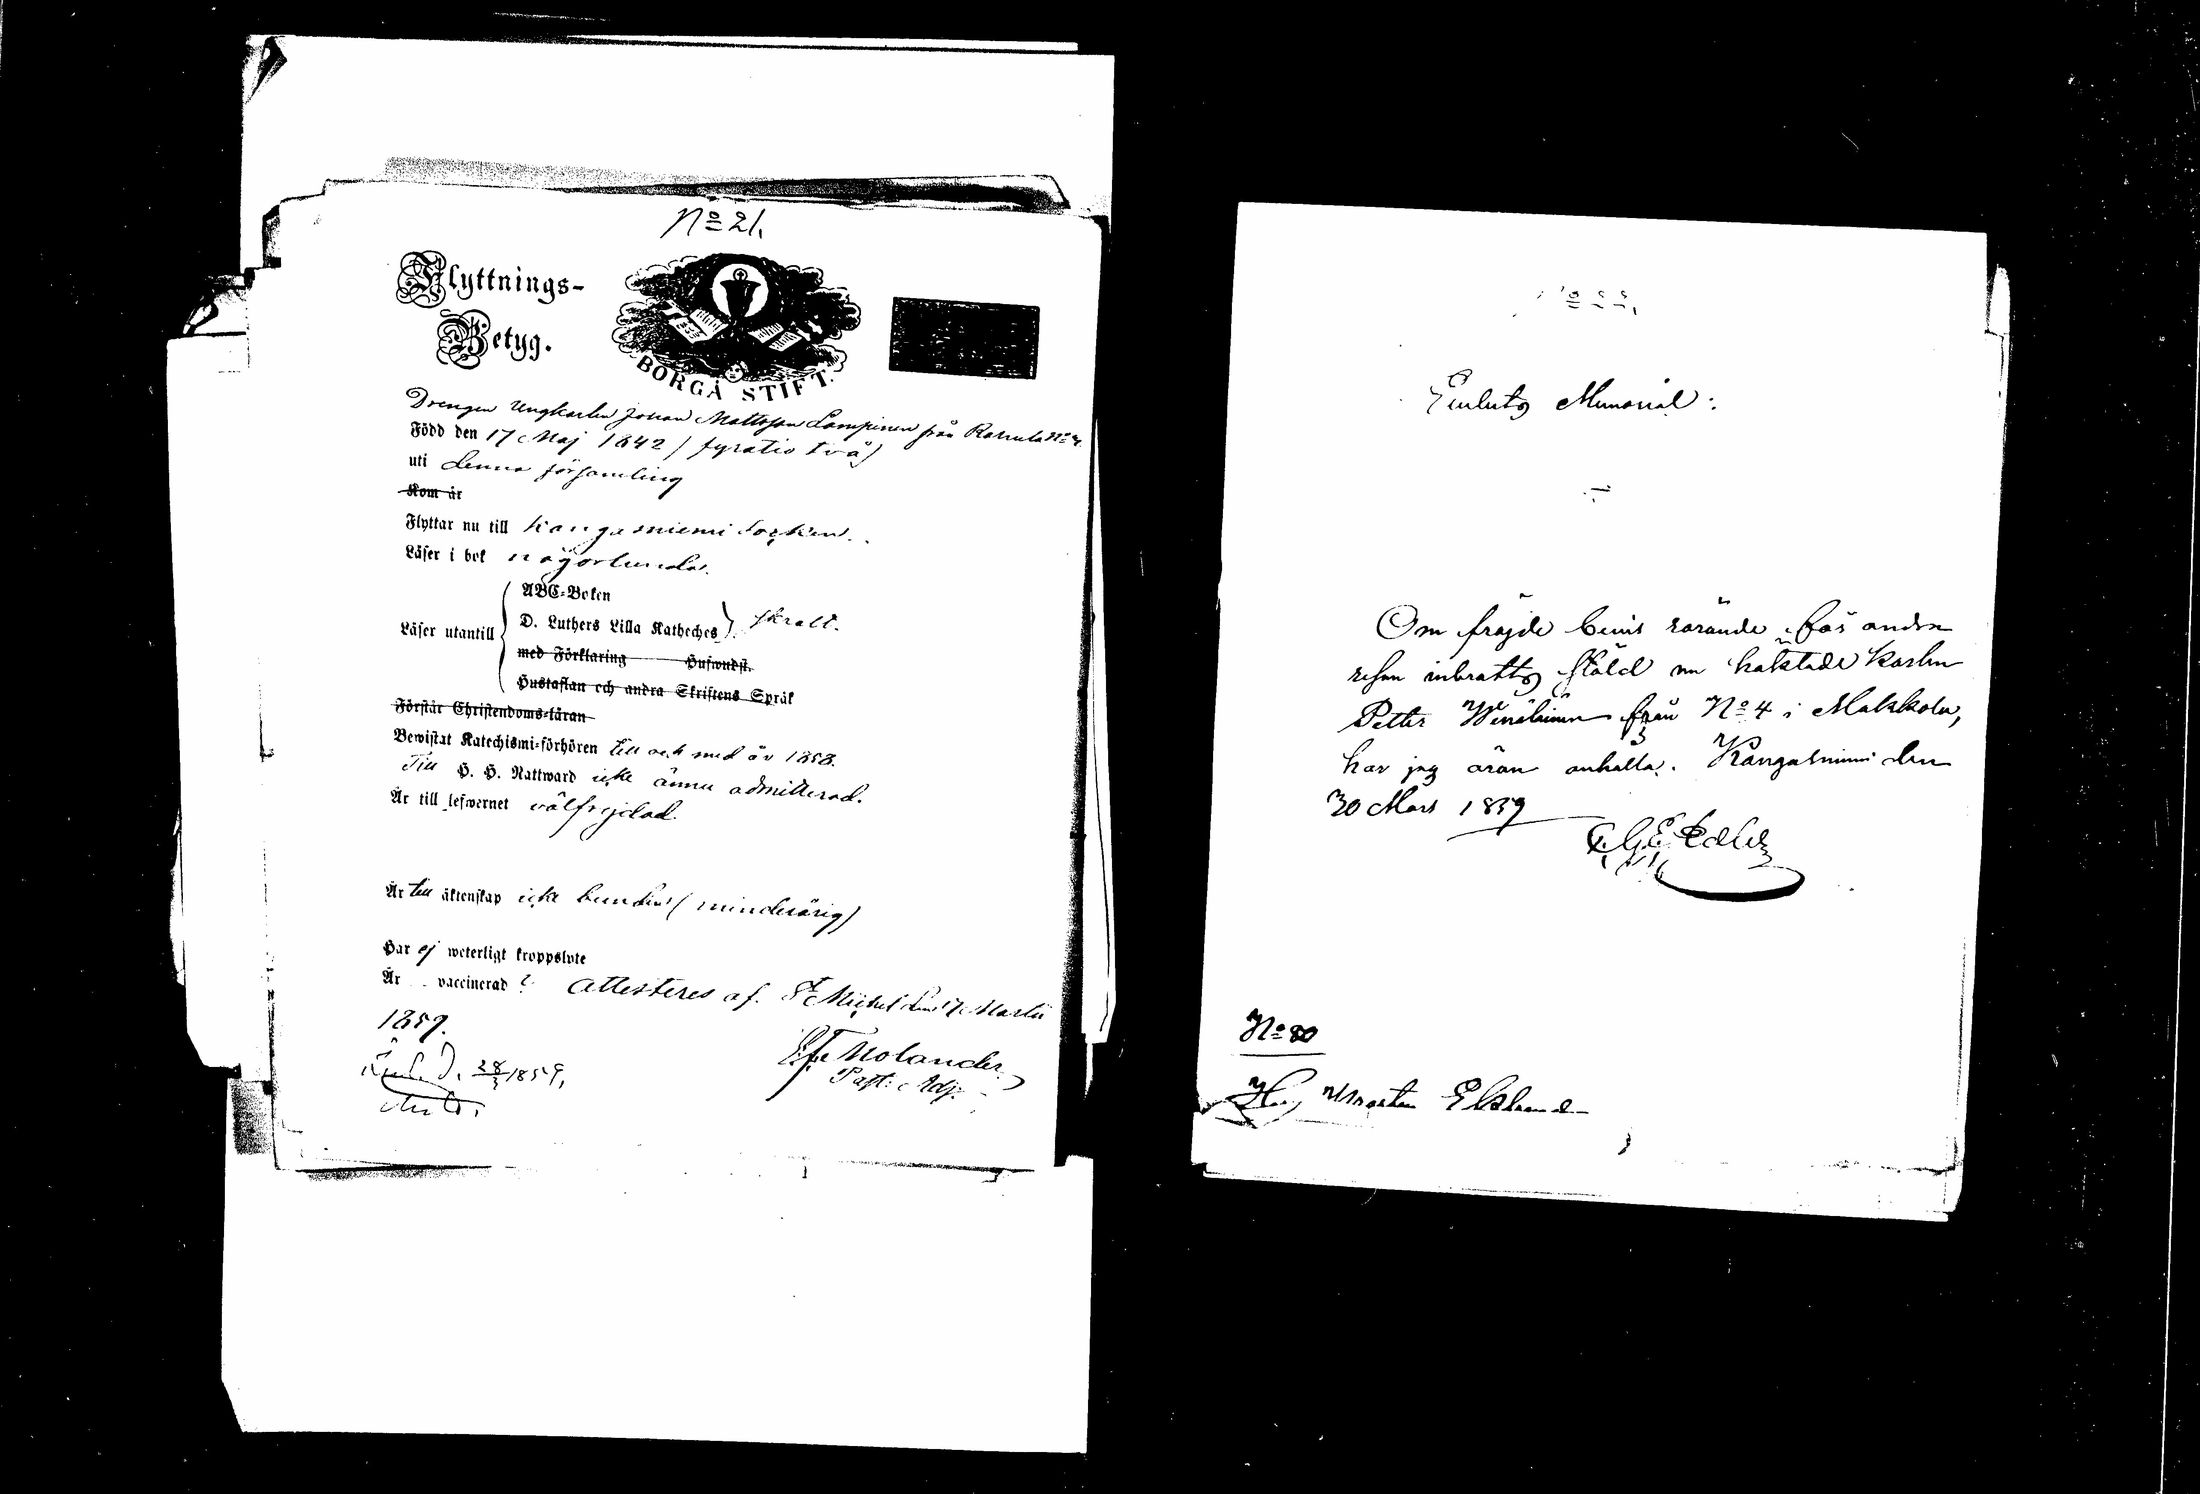 No 21.
Flyttnings-
Betyg.
BORGÅ STIFT.
Drengen Ungkarlen Johan Mattsson Lampinen från No 4.
Född den 17 Maj 1842 / fyratio två /
uti denna församling
Kom år
Flyttar nu till Kangasniemi Socken.
Läser i bok någorlunda.
ABC-Boken
Läser utantill D. Luthers Lilla Katheches skralt.
med Förklaring Huswudst.
Hustaflan och andra Skriftens Språk
Förstår Christendoms-läran
Bewistat Katechismi-förhören till och med år 1858.
Till H. H. Nattward icke ännu admitterad.
Är till lefwernet välfrejdad.
Är till äktenskap icke bunden (minderårig)
Har ej weterligt kroppslyte
Är vaccinerad attesteres af. St Michel den 17 Martii
1859.
Molander
Past. Adj.
28/3 1859.
No 22.
Memorial:
Om fräjde bevis rörande för andra
resan inbrotts stöld nu häktade karlen
Petter från No 4 i Makkola,
har jag äran anhålla. Kangasniemi den
30 Mars 1859
No 80